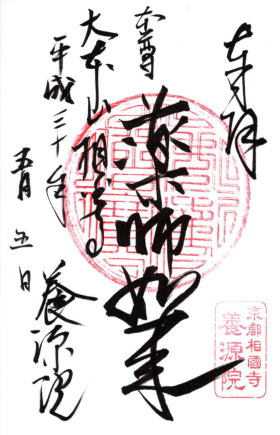 奉拝
本尊
薬師如来
大本山相国寺
平成三十年
五月五日
養源院
京都相國寺
養源院